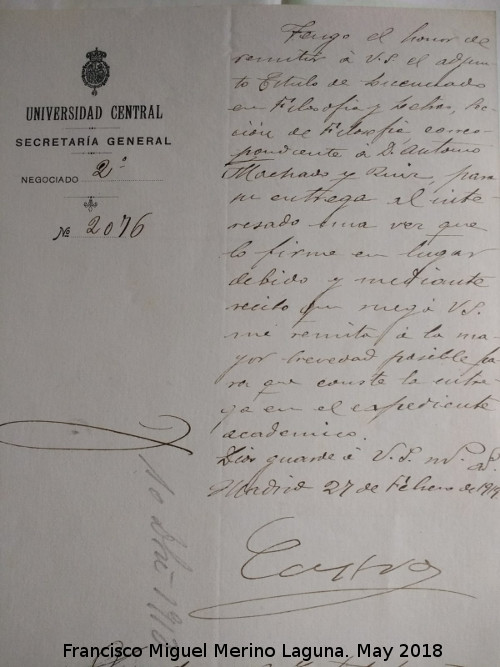 UNIVERSIDAD CENTRAL
SECRETARÍA GENERAL
NEGOCIADO 2º
Nº 2076
Tengo el honor de
remitir á V.S. el adjun-
to Título de Licenciado
en Filosofía y Letras, Sec-
ción de Filosofía, corres-
pondiente á D. Antonio
Machado y Ruiz, para
su entrega al inte-
resado una vez que
lo firme en lugar
debido y mediante
recibo que ruego á V.S.
me remita á la ma-
yor brevedad posible pa-
ra que conste la entre-
ga en el expediente
académico.
Dios guarde á V.S. m.s a.s
Madrid 27 de Febrero de 1919
Francisco Miguel Merino Laguna. May 2018